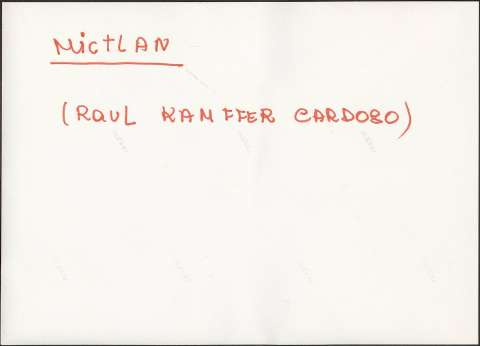 MictLAN
(RauL KAMFFER CARDOSO)